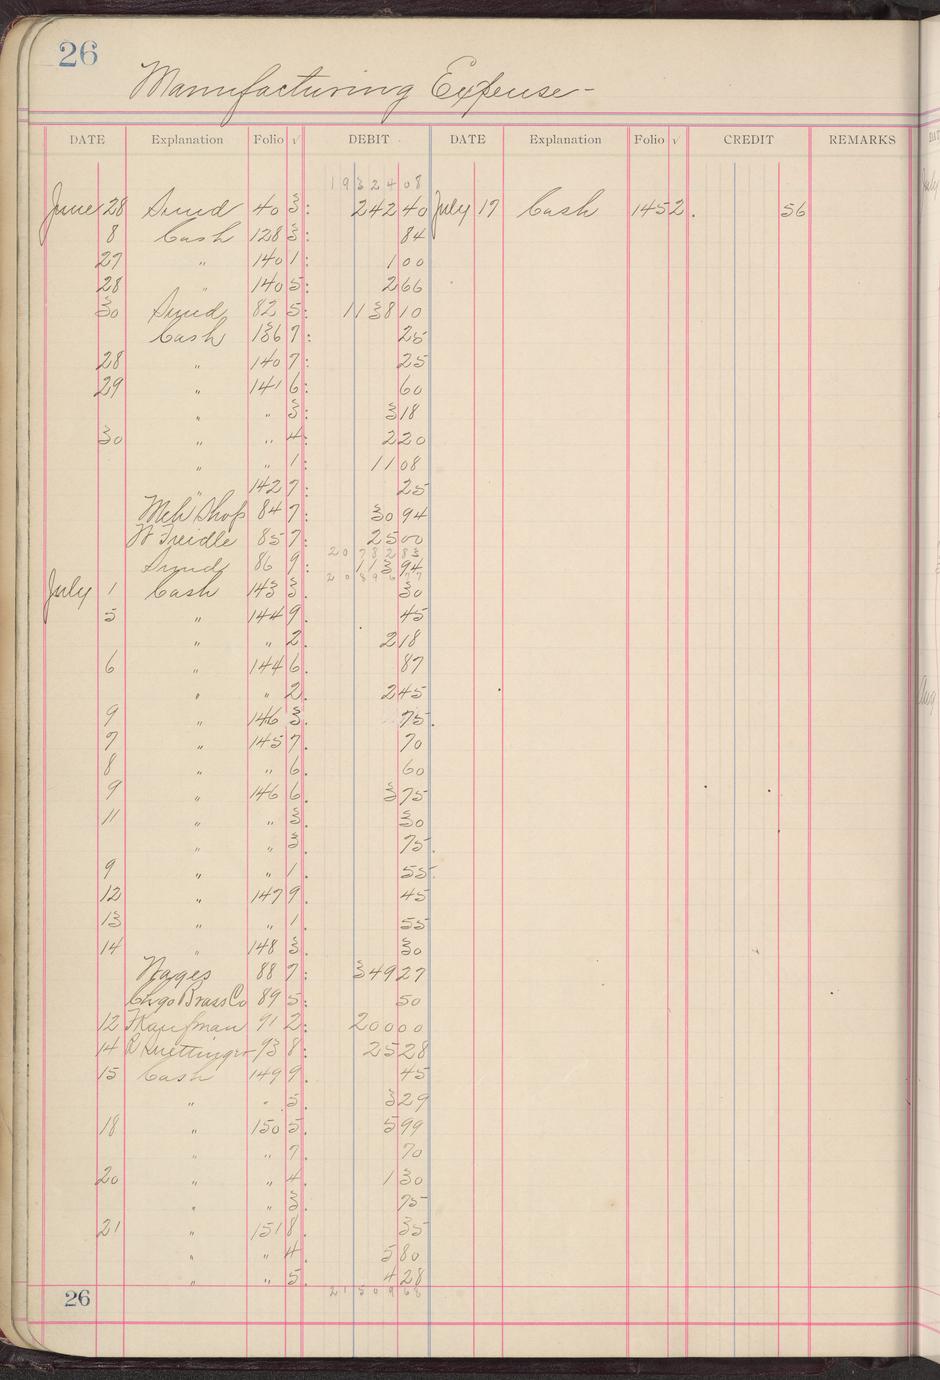 26
Manufacturing Expense -
DATE Explanation Folio √ DEBIT DATE Explanation Folio √ CREDIT REMARKS
1932408
June 28 Sund 40 3: 242 40 July 17 Cash 145 2. 56
8 Cash 128 3: 84
27 " 140 1: 1 00
28 " 140 5: 2 66
30 Sund 82 5: 1138 10
Cash 136 7: 25
28 " 140 7: 25
29 " 141 6: 60
" " 3: 3 18
30 " " 4: 2 20
" " 1: 11 08
" 142 7: 25
Mch Shop 84 7: 30 94
W Treidle 85 7: 25 00
2078283
Sund 86 9: 113 94
2089677
July 1 Cash 143 3. 30
5 " 144 9. 45
" " 2. 2 18
6 " 144 6. 87
" " 2. 2 45
9 " 146 3. 75.
7 " 145 7. 70
8 " " 6. 60
9 " 146 6. 3 75
11 " " 3. 30
" " 3. 75.
9 " " 1. 55.
12 " 147 9. 45
13 " " 1. 55
14 " 148 3. 30
Wages 88 7: 349 27
Chgo Brass Co 89 5: 50
12 F Kaufman 91 2: 200 00
14 93 8: 25 28
15 Cash 149 9. 45
" " 5. 3 29
18 " 150 5. 5 99
" " 7. 70
20 " " 4. 1 30
" " 3. 75
21 " 151 8. 35
" " 4. 5 80
" " 5. 4 28
2150968
26